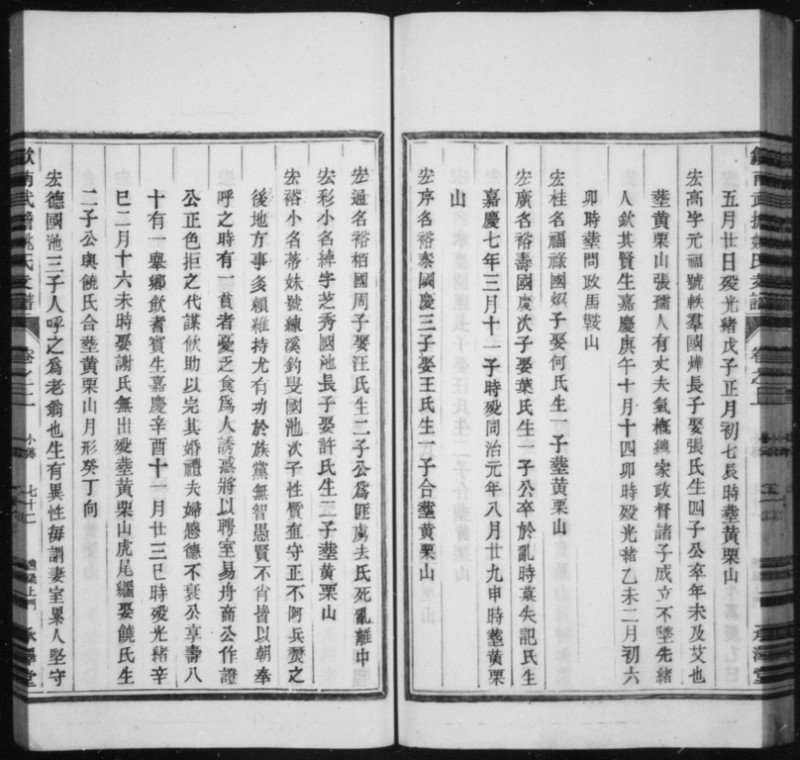 五月廿日歿光緒戊子正月初七辰時塟黃栗山
宏高字元福號軼羣國燁長子娶張氏生四子公卒年未及艾也
塟黃栗山張孺人有丈夫氣槪總家政督諸子成立不墜先緒
人欽其賢生嘉慶庚午十月十四卯時歿光緒乙未二月初六
卯時塟問政馬鞍山
宏桂名福祿國 子娶何氏生一子塟黃栗山
宏廣名裕壽國慶次子娶葉氏生一子公卒於亂時墓失記氏生
嘉慶七年三月十一子時歿同治元年八月廿九申時塟黃栗
山
宏序名裕泰國慶三子娶王氏生一子合塟黃栗山
宏 名裕栢國周子娶汪氏生二子公爲匪虜去氏死亂離中
宏彩小名 字芝秀國池長子娶許氏生二子塟黃栗山
宏裕小名蒂妹號練溪釣叟國池次子性質直守正不阿兵燹之
後地方事多賴維持尤有功於族黨無智愚賢不肖皆以朝奉
呼之時有一貧者憂乏食爲人誘惑將以聘室易舟商公作證
公正色拒之代謀伙助以完其婚禮夫婦感德不衰公享壽八
十有一舉鄉飮耆賓生嘉慶辛酉十一月廿三巳時歿光緒辛
巳二月十六未時娶謝氏無出歿塟黃栗山虎尾繼娶饒氏生
二子公與饒氏合塟黃栗山月形癸丁向
宏德國池三子人呼之爲老翁也生有異性每謂妻室累人堅守
卷之二
七十二
承澤堂